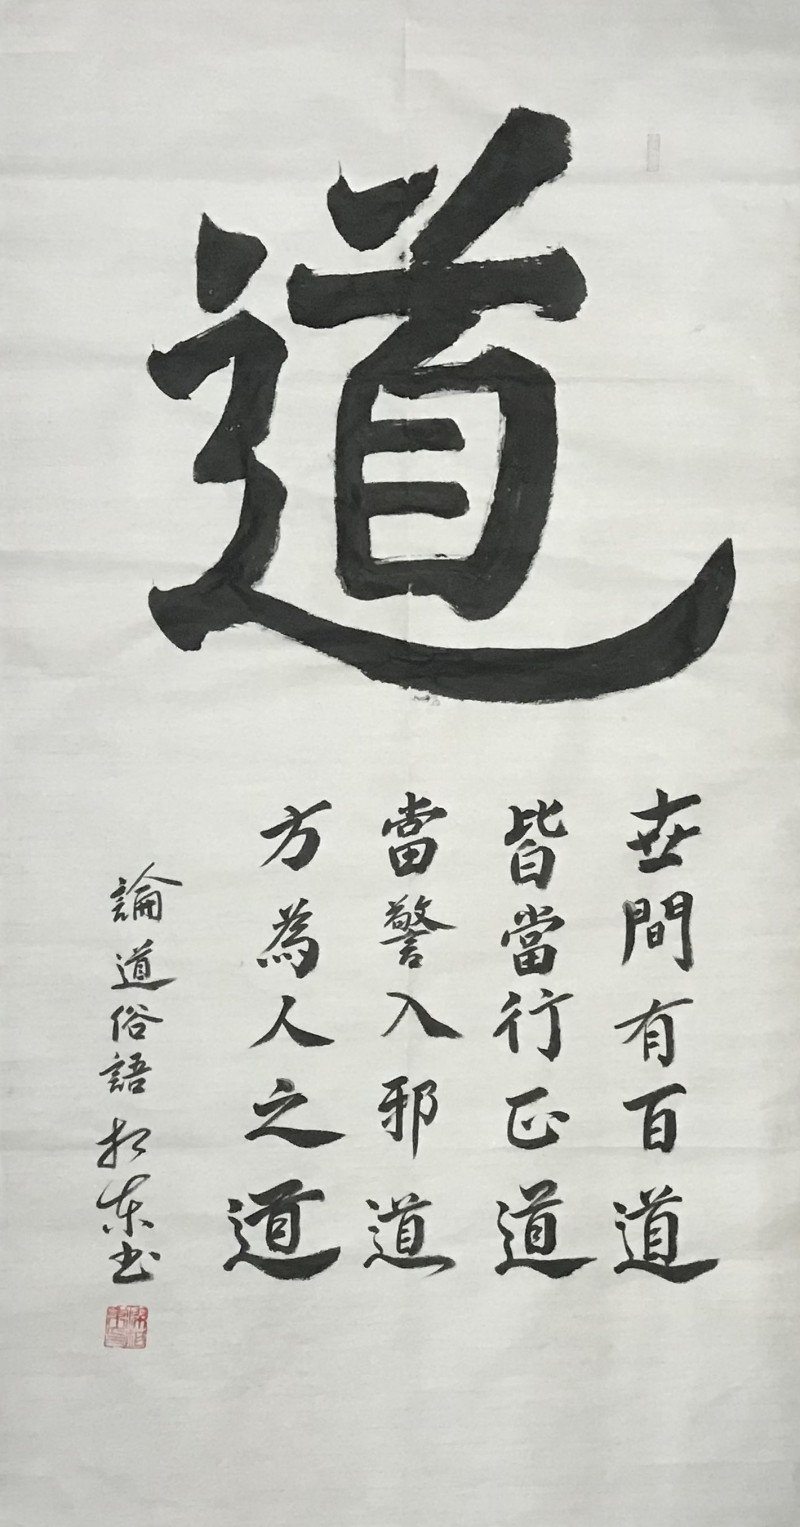 道
世間有百道
皆當行正道
當警入邪道
方為人之道
論道俗語 東书